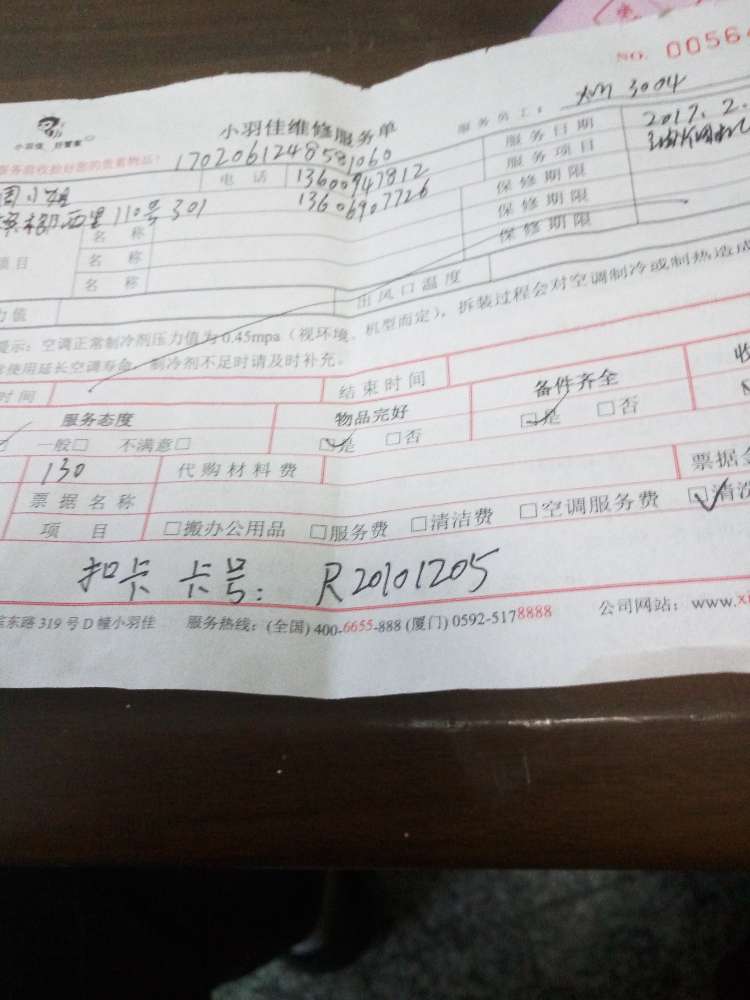 NO. 00564
小羽佳 好管家
小羽佳维修服务单
服务员工: XM 3004
服务前收拾好您的贵重物品!
1702061248581060
服务日期 2017.2.
周小姐
电话 13600947812
13606907726
服务项目
西里110号301
保修期限
名称
保修期限
项目 名称
保修期限
名称
力值
出风口温度
提示:空调正常制冷剂压力值为0.45mpa(视环境、机型而定),拆装过程会对空调制冷或制热造成
使用延长空调寿命,制冷剂不足时请及时补充。
时间
结束时间
服务态度
物品完好
备件齐全
收
一般□ 不满意□
☑是 □否
☑是 □否
130
代购材料费
票据金
票据名称
项目 □搬办公用品 □服务费 □清洁费 □空调服务费 ☑清洗
扣卡 卡号: R20101205
东路319号D幢小羽佳 服务热线:(全国)400-6655-888 (厦门)0592-5178888 公司网站:www.xi